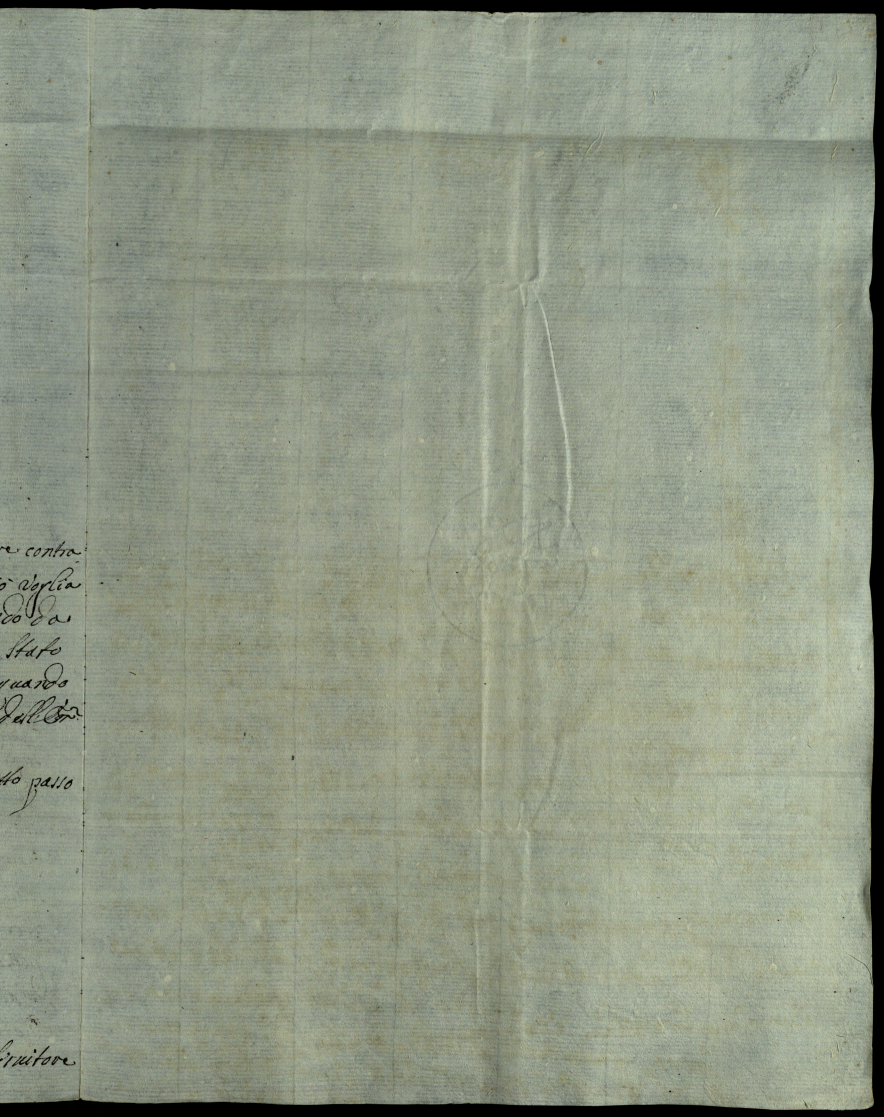 re contra
ò voglia
do da
Stato
quando
dell'Em
tto passo
Servitore